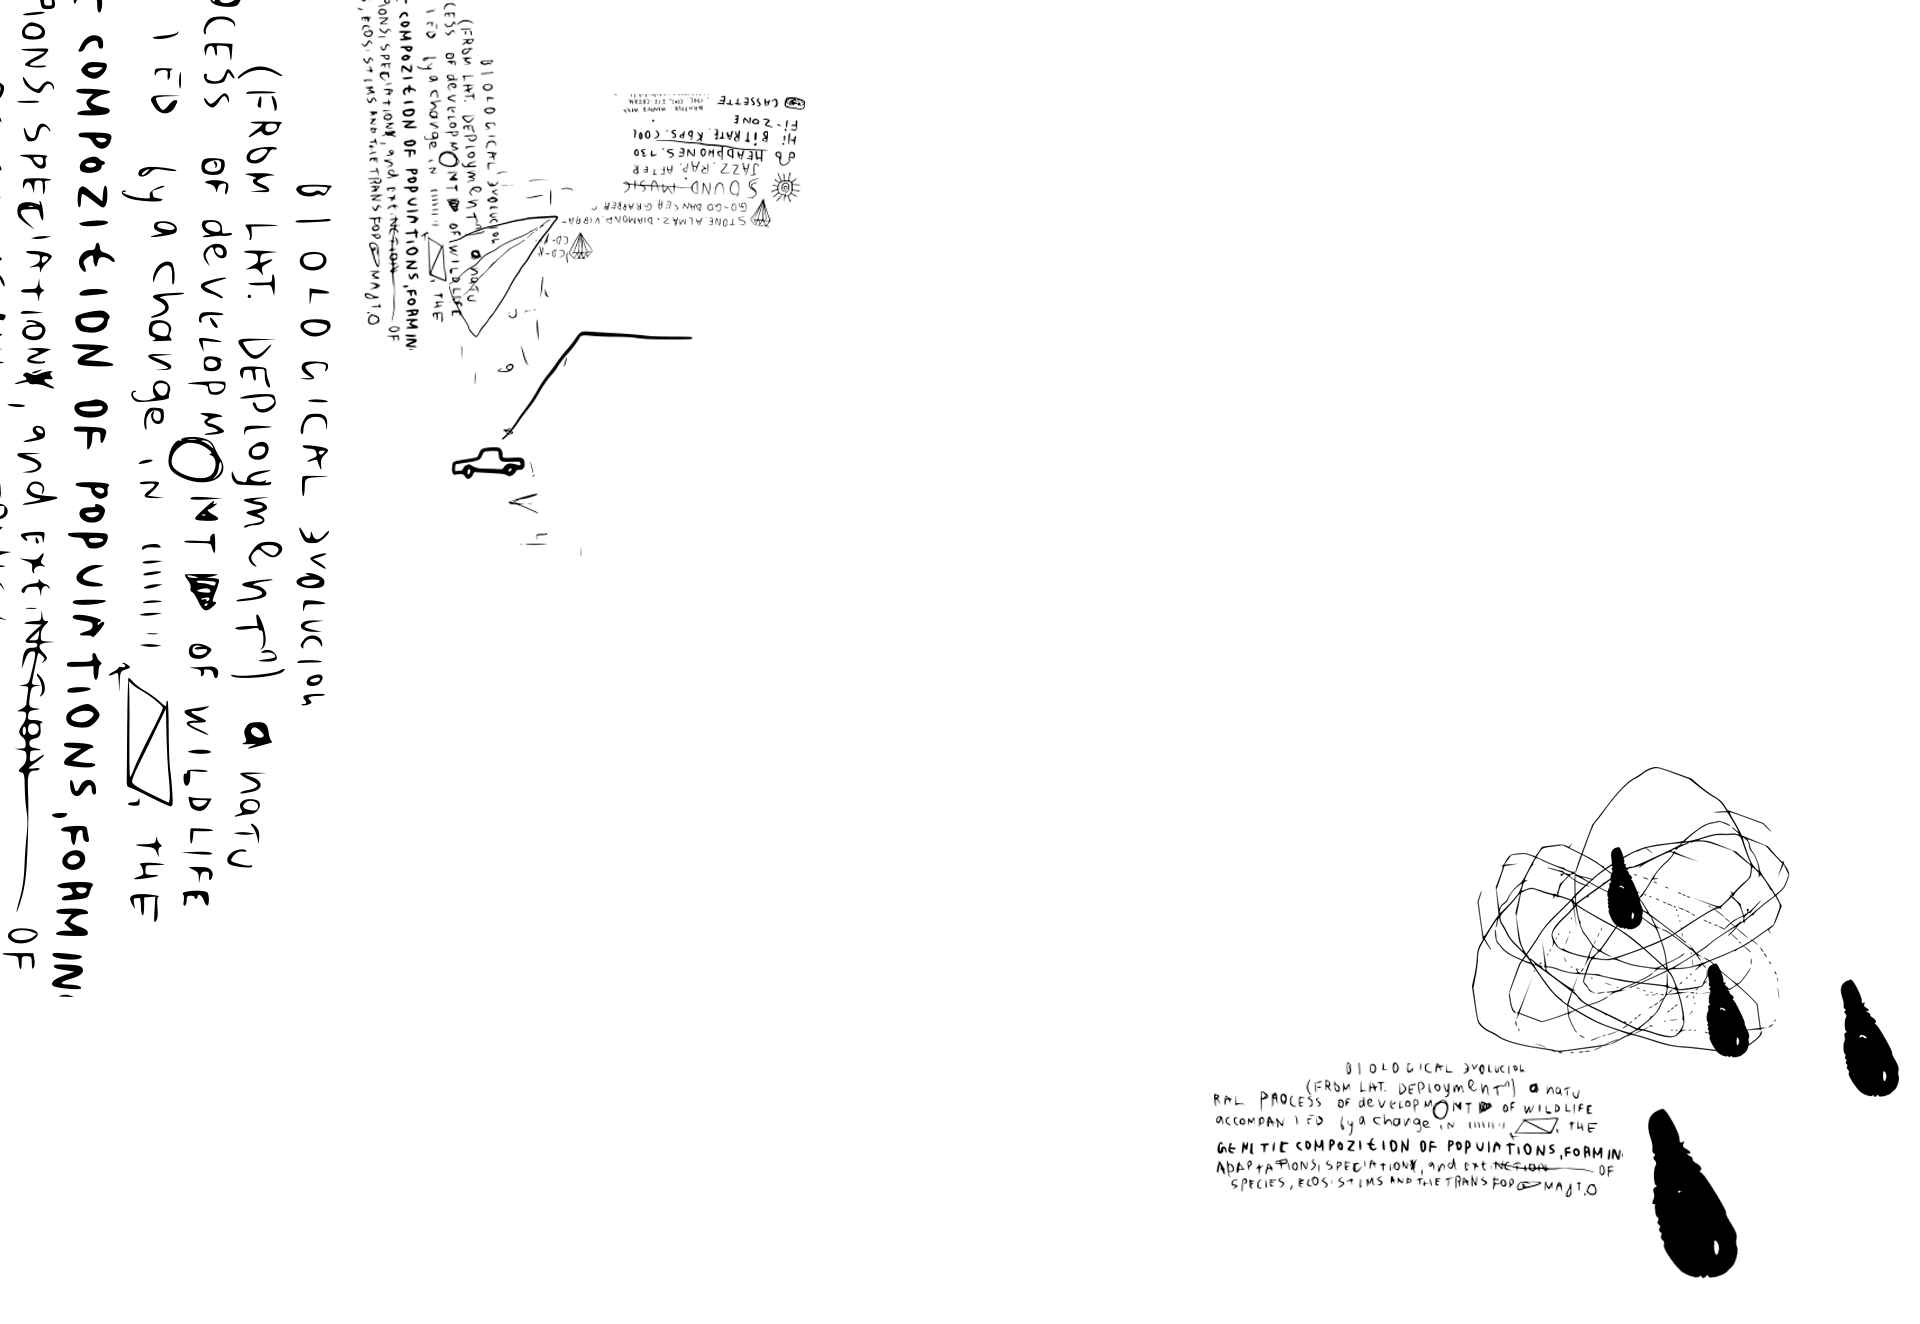 BIOLOGICAL EVOLUCION
(FROM LAT. DEPloymeNT") a natu
OCESS OF developMONT OF WILDLIFE
IED by a change IN THE
COMPOZITION OF POPULATIONS, FORMIN
IONS, SPECIATION, and EXTINCTION OF
BIOLOGICAL EVOLUCION
(FROM LAT. DEPloymeNT") a natu
CESS OF developMONT OF WILDLIFE
IED by a change IN THE
COMPOZITION OF POPULATIONS, FORMIN
IONS, SPECIATION, and EXTINCTION OF
, ECOSISTIMS AND THE TRANSFOR MAJT.O
STONE. ALMAZ. DIAMOND. VIBRA
GO-GO DANCER GRABBER
SOUND. MUSIC
JAZZ. RAP. AFTER
HEADPHONES. 130
Hi BITRATE. KBPS. COOL
Fi-ZONE
CASSETTE
CD-R
CD-R
BIOLOGICAL EVOLUCION
(FROM LAT. DEPloymeNT") a natu
RAL PROCESS OF developMONT OF WILDLIFE
ACCOMPANIED by a change IN THE
GENETIC COMPOZITION OF POPULATIONS, FORMIN
ADAPTATIONS, SPECIATION, and EXTINCTION OF
SPECIES, ECOSISTIMS AND THE TRANSFOR MAJT.O